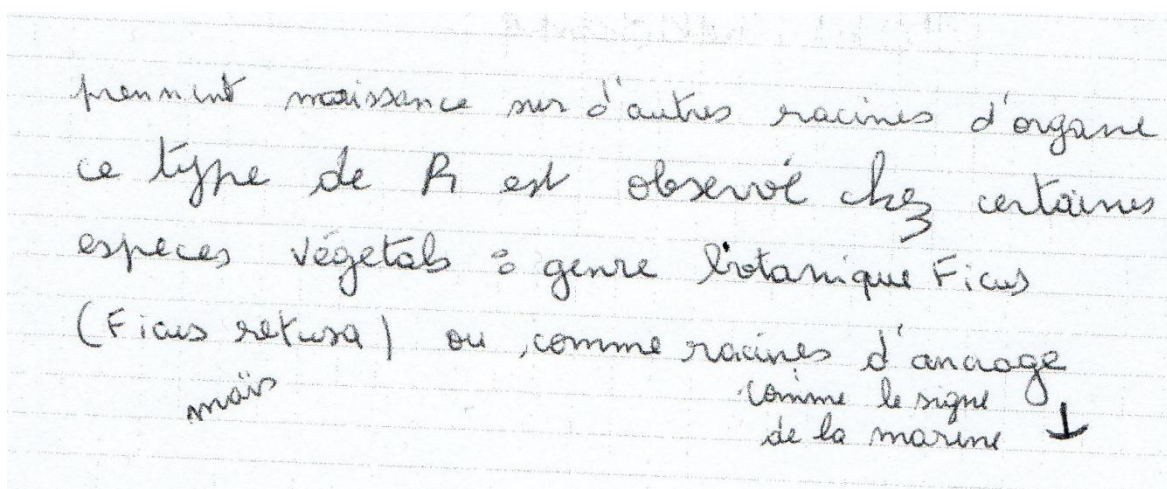 prennent naissance sur d'autres racines d'organe
ce type de R est observé chez certaines
espèces végétals : genre botanique Ficus
(Ficus retusa) ou, comme racines d'ancrage
maïs
comme le signe
de la marine ↓